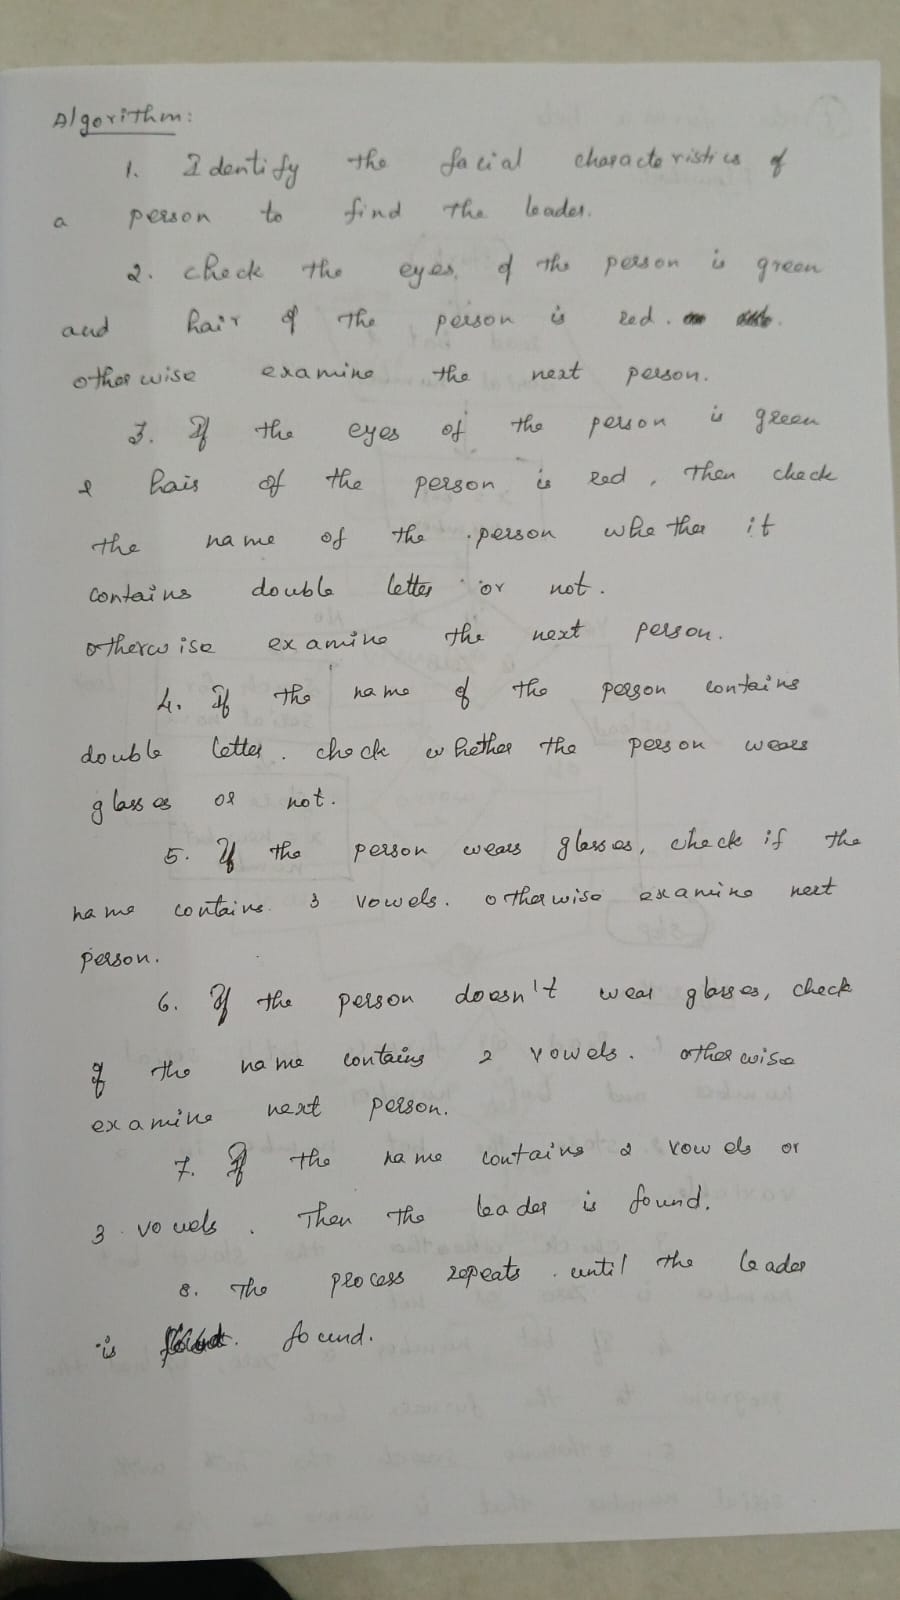 Algorithm:
1. Identify the facial characteristics of
a person to find the leader.
2. check the eyes of the person is green
and hair of the person is red.
otherwise examine the next person.
3. If the eyes of the person is green
& hair of the person is red, then check
the name of the person whether it
contains double letter or not.
otherwise examine the next person.
4. If the name of the person contains
double letter. check whether the person wears
glasses or not.
5. If the person wears glasses, check if the
name contains 3 vowels. otherwise examine next
person.
6. If the person doesn't wear glasses, check
if the name contains 2 vowels. otherwise
examine next person.
7. If the name contains 2 vowels or
3 vowels. Then the leader is found.
8. The process repeats until the leader
is found.